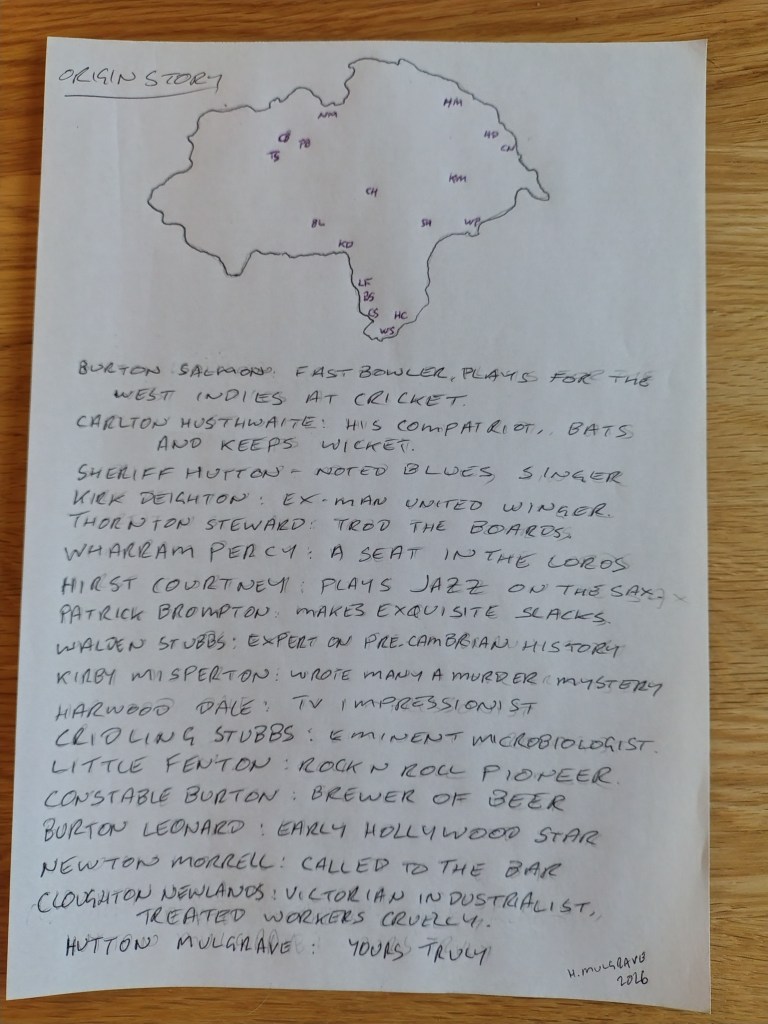 ORIGIN STORY
NM
HM
CB
PB
TS
HD
CN
CH
KM
BL
SH
WP
KD
LF
BS
CS
HC
WS
BURTON SALMON: FAST BOWLER, PLAYS FOR THE
WEST INDIES AT CRICKET.
CARLTON HUSTHWAITE: HIS COMPATRIOT, BATS
AND KEEPS WICKET.
SHERIFF HUTTON - NOTED BLUES SINGER
KIRK DEIGHTON: EX-MAN UNITED WINGER.
THORNTON STEWARD: TROD THE BOARDS.
WHARRAM PERCY: A SEAT IN THE LORDS
HIRST COURTNEY: PLAYS JAZZ ON THE SAX
PATRICK BROMPTON: MAKES EXQUISITE SLACKS.
WALDEN STUBBS: EXPERT ON PRE-CAMBRIAN HISTORY
KIRBY MISPERTON: WROTE MANY A MURDER MYSTERY
HARWOOD DALE: TV IMPRESSIONIST
CRIDLING STUBBS: EMINENT MICROBIOLOGIST.
LITTLE FENTON: ROCK N ROLL PIONEER.
CONSTABLE BURTON: BREWER OF BEER
BURTON LEONARD: EARLY HOLLYWOOD STAR
NEWTON MORRELL: CALLED TO THE BAR
CLOUGHTON NEWLANDS: VICTORIAN INDUSTRIALIST,
TREATED WORKERS CRUELLY.
HUTTON MULGRAVE: YOURS TRULY
H. MULGRAVE
2026